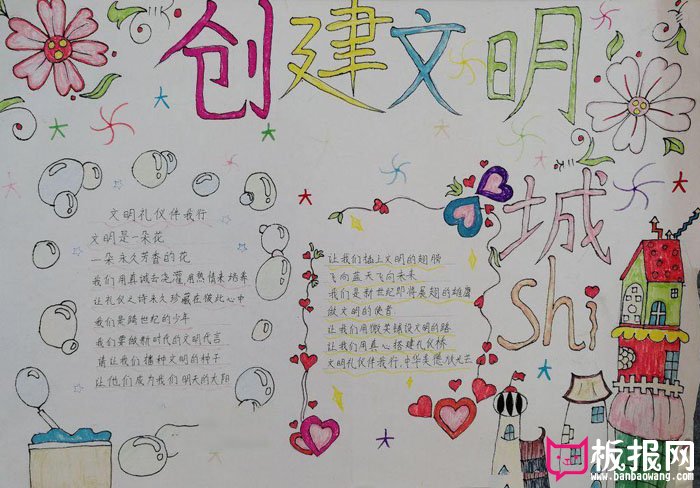 创建文明
城
shi
文明礼仪伴我行
文明是一朵花
一朵永久芳香的花
我们用真诚去浇灌用热情来培养
让礼仪之诗永久珍藏在彼此心中
我们是跨世纪的少年
我们要做新时代的文明代言
请让我们播种文明的种子
让他们成为我们明天的太阳
让我们插上文明的翅膀
飞向蓝天飞向未来
我们是新世纪即将展翅的雄鹰
做文明的使者
让我们用微笑铺设文明的路
让我们用真心搭建礼仪桥
文明礼仪伴我行,中华美德放光芒
板报网
www.banbaowang.com